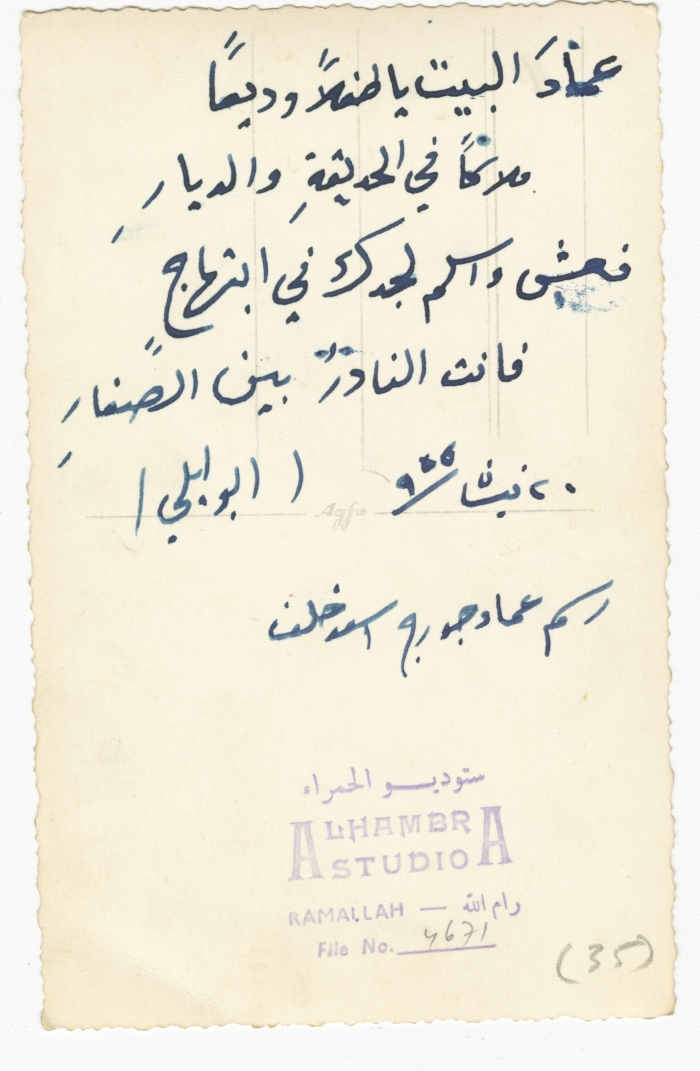 عمادَ البيت يا طفلاً وديعاً
ملاكاً في الحديقةِ والديارِ
فعش واسلم لجدك في ابتهاج
فانت النادرُ بين الصِّغارِ
٢٠ نيسان ٩٥٥ (ابو ايلي)
Agfa
رسم عماد جورج اسعد خلف
ستوديو الحمراء
ALHAMBRA
STUDIO
RAMALLAH — رام الله
File No. 4671
(35)